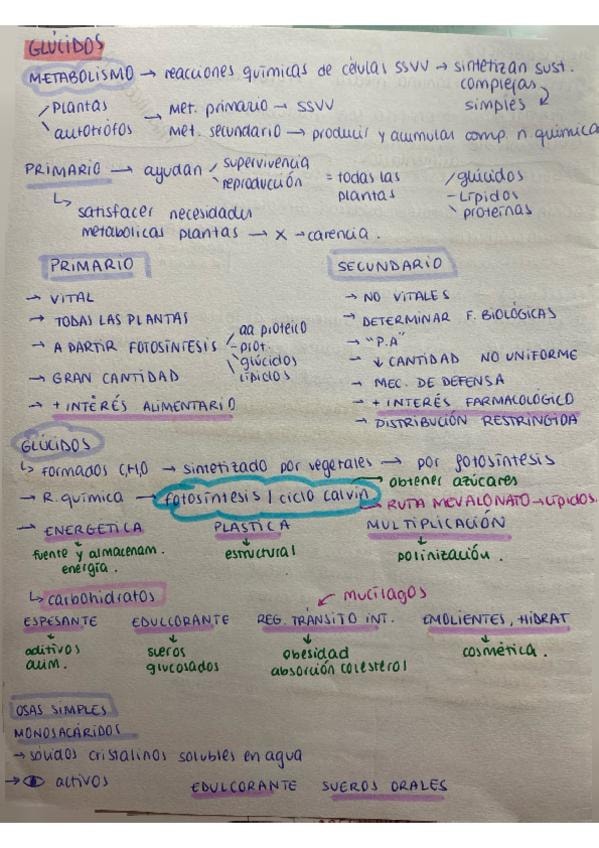 GLÚCIDOS
METABOLISMO → reacciones químicas de célula / SSVV → sintetizan sust.
complejas
simples
/ Plantas
\ autotrófos
→ Met. primario → SSVV
Met. secundario → producir y acumular comp. n. química
PRIMARIO → ayudan / supervivencia
\ reproducción
= todas las plantas
/ glúcidos
- Lípidos
\ proteínas
↳ satisfacer necesidades
metabólicas plantas → X → carencia.
PRIMARIO
→ VITAL
→ TODAS LAS PLANTAS
→ A PARTIR FOTOSÍNTESIS
/ aa proteico
- prot.
\ glúcidos
\ lípidos
→ GRAN CANTIDAD
→ + INTERÉS ALIMENTARIO
SECUNDARIO
→ NO VITALES
→ DETERMINAR F. BIOLÓGICAS
→ "P.A"
→ ↓ CANTIDAD NO UNIFORME
→ MEC. DE DEFENSA
→ + INTERÉS FARMACOLÓGICO
→ DISTRIBUCIÓN RESTRINGIDA
GLÚCIDOS
↳ formados C,H,O → sintetizado por vegetales → por fotosíntesis
→ R. química → fotosíntesis / ciclo calvin
→ obtener azúcares
→ RUTA MEVALONATO → Lípidos.
→ ENERGÉTICA PLASTICA MULTIPLICACIÓN
fuente y almacenam. energía.
estructural
polinización.
↳ carbohidratos
mucílagos
ESPESANTE EDULCORANTE REG. TRÁNSITO INT. EMOLIENTES, HIDRAT
aditivos alim.
sueros glucosados
obesidad
absorción colesterol
cosmética.
OSAS SIMPLES
MONOSACÁRIDOS
→ sólidos cristalinos solubles en agua
→ activos EDULCORANTE SUEROS ORALES